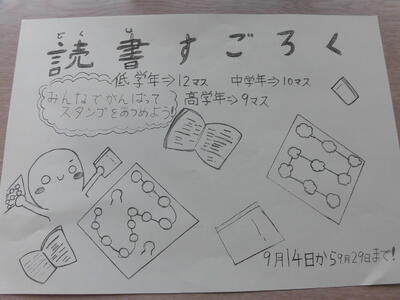 どくしょ
読書すごろく
低学年⇒12マス 中学年⇒10マス
高学年⇒9マス
みんなでがんばって
スタンプをあつめよう!
9月14日から9月29日まで!